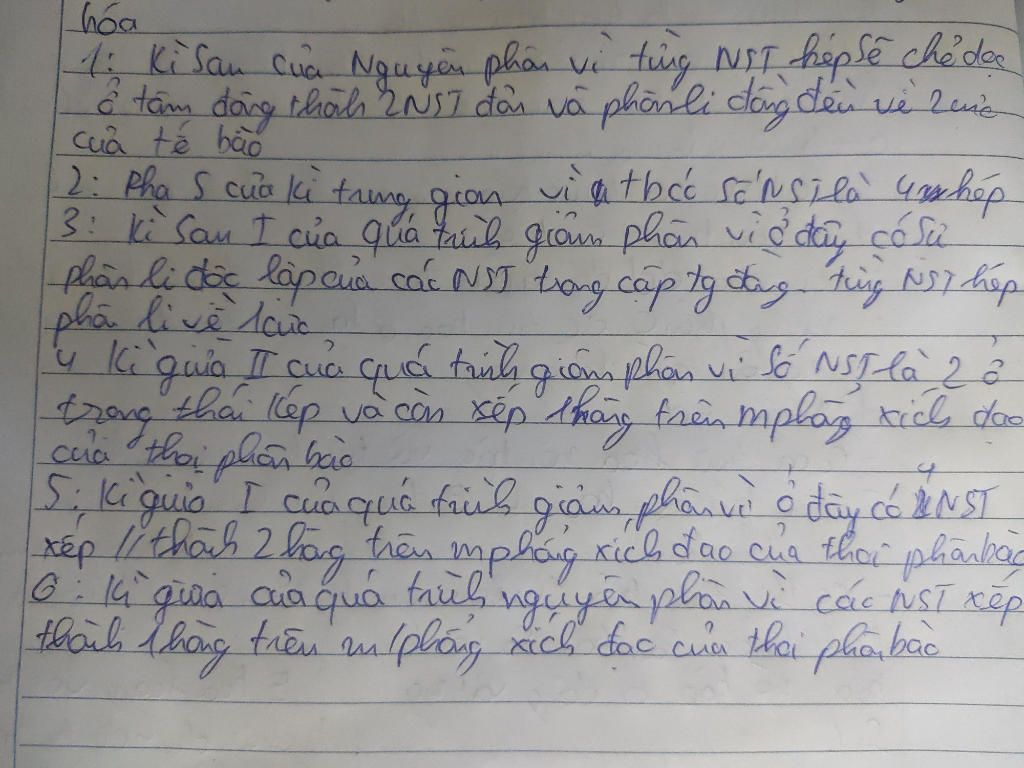 hóa
1: Kì sau của Nguyên phân vì từng NST kép sẽ chẻ dọc
ở tâm động thành 2NST đơn và phân li đồng đều về 2 cực
của tế bào
2: Pha S của kì trung gian vì tb có số NST là 4 kép
3: Kì sau I của quá trình giảm phân vì ở đây có sự
phân li độc lập của các NST trong cặp tg đồng. từng NST kép
phân li về 1 cực
4 Kì giữa II của quá trình giảm phân vì số NST là 2 ở
trạng thái kép và còn xếp 1 hàng trên mphẳng xích đạo
của thoi phân bào
5: Kì giữa I của quá trình giảm phân vì ở đây có 4 NST
xếp // thành 2 hàng trên mphẳng xích đạo của thoi phân bào
6: Kì giữa của quá trình nguyên phân vì các NST xếp
thành 1 hàng trên m/phẳng xích đạo của thoi phân bào